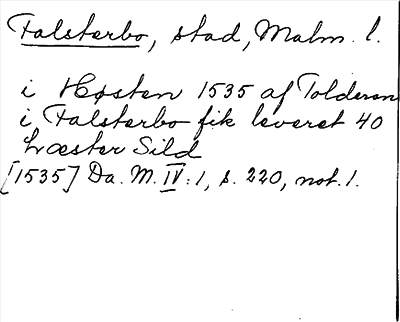 Falsterbo, stad, Malm. l.
i Høsten 1535 af Tolderen
i Falsterbo fik leveret 40
Læster Sild
[1535] Da. M. IV:1, s. 220, not. 1.